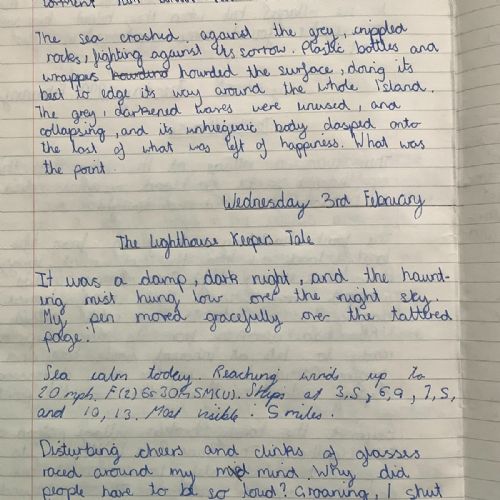 The sea crashed against the grey, crippled
rocks, fighting against its sorrow. Plastic bottles and
wrappers hounded the surface, doing its
best to edge its way around the whole island.
The grey, darkened waves were unused, and
collapsing, and its body clasped onto
the last of what was left of happiness. What was
the point.
Wednesday 3rd February
The Lighthouse Keepers Tale
It was a damp, dark night, and the haunt-
ing mist hung low over the night sky.
My pen moved gracefully over the tattered
page.
Sea calm today. Reaching winds up to
20mph. Ships at 3,5, 6,9, 7,5,
and 10,13. Most visible: 5 miles.
Disturbing cheers and clinks of glasses
raced around my mind. Why did
people have to be so loud? Groaning, I shut